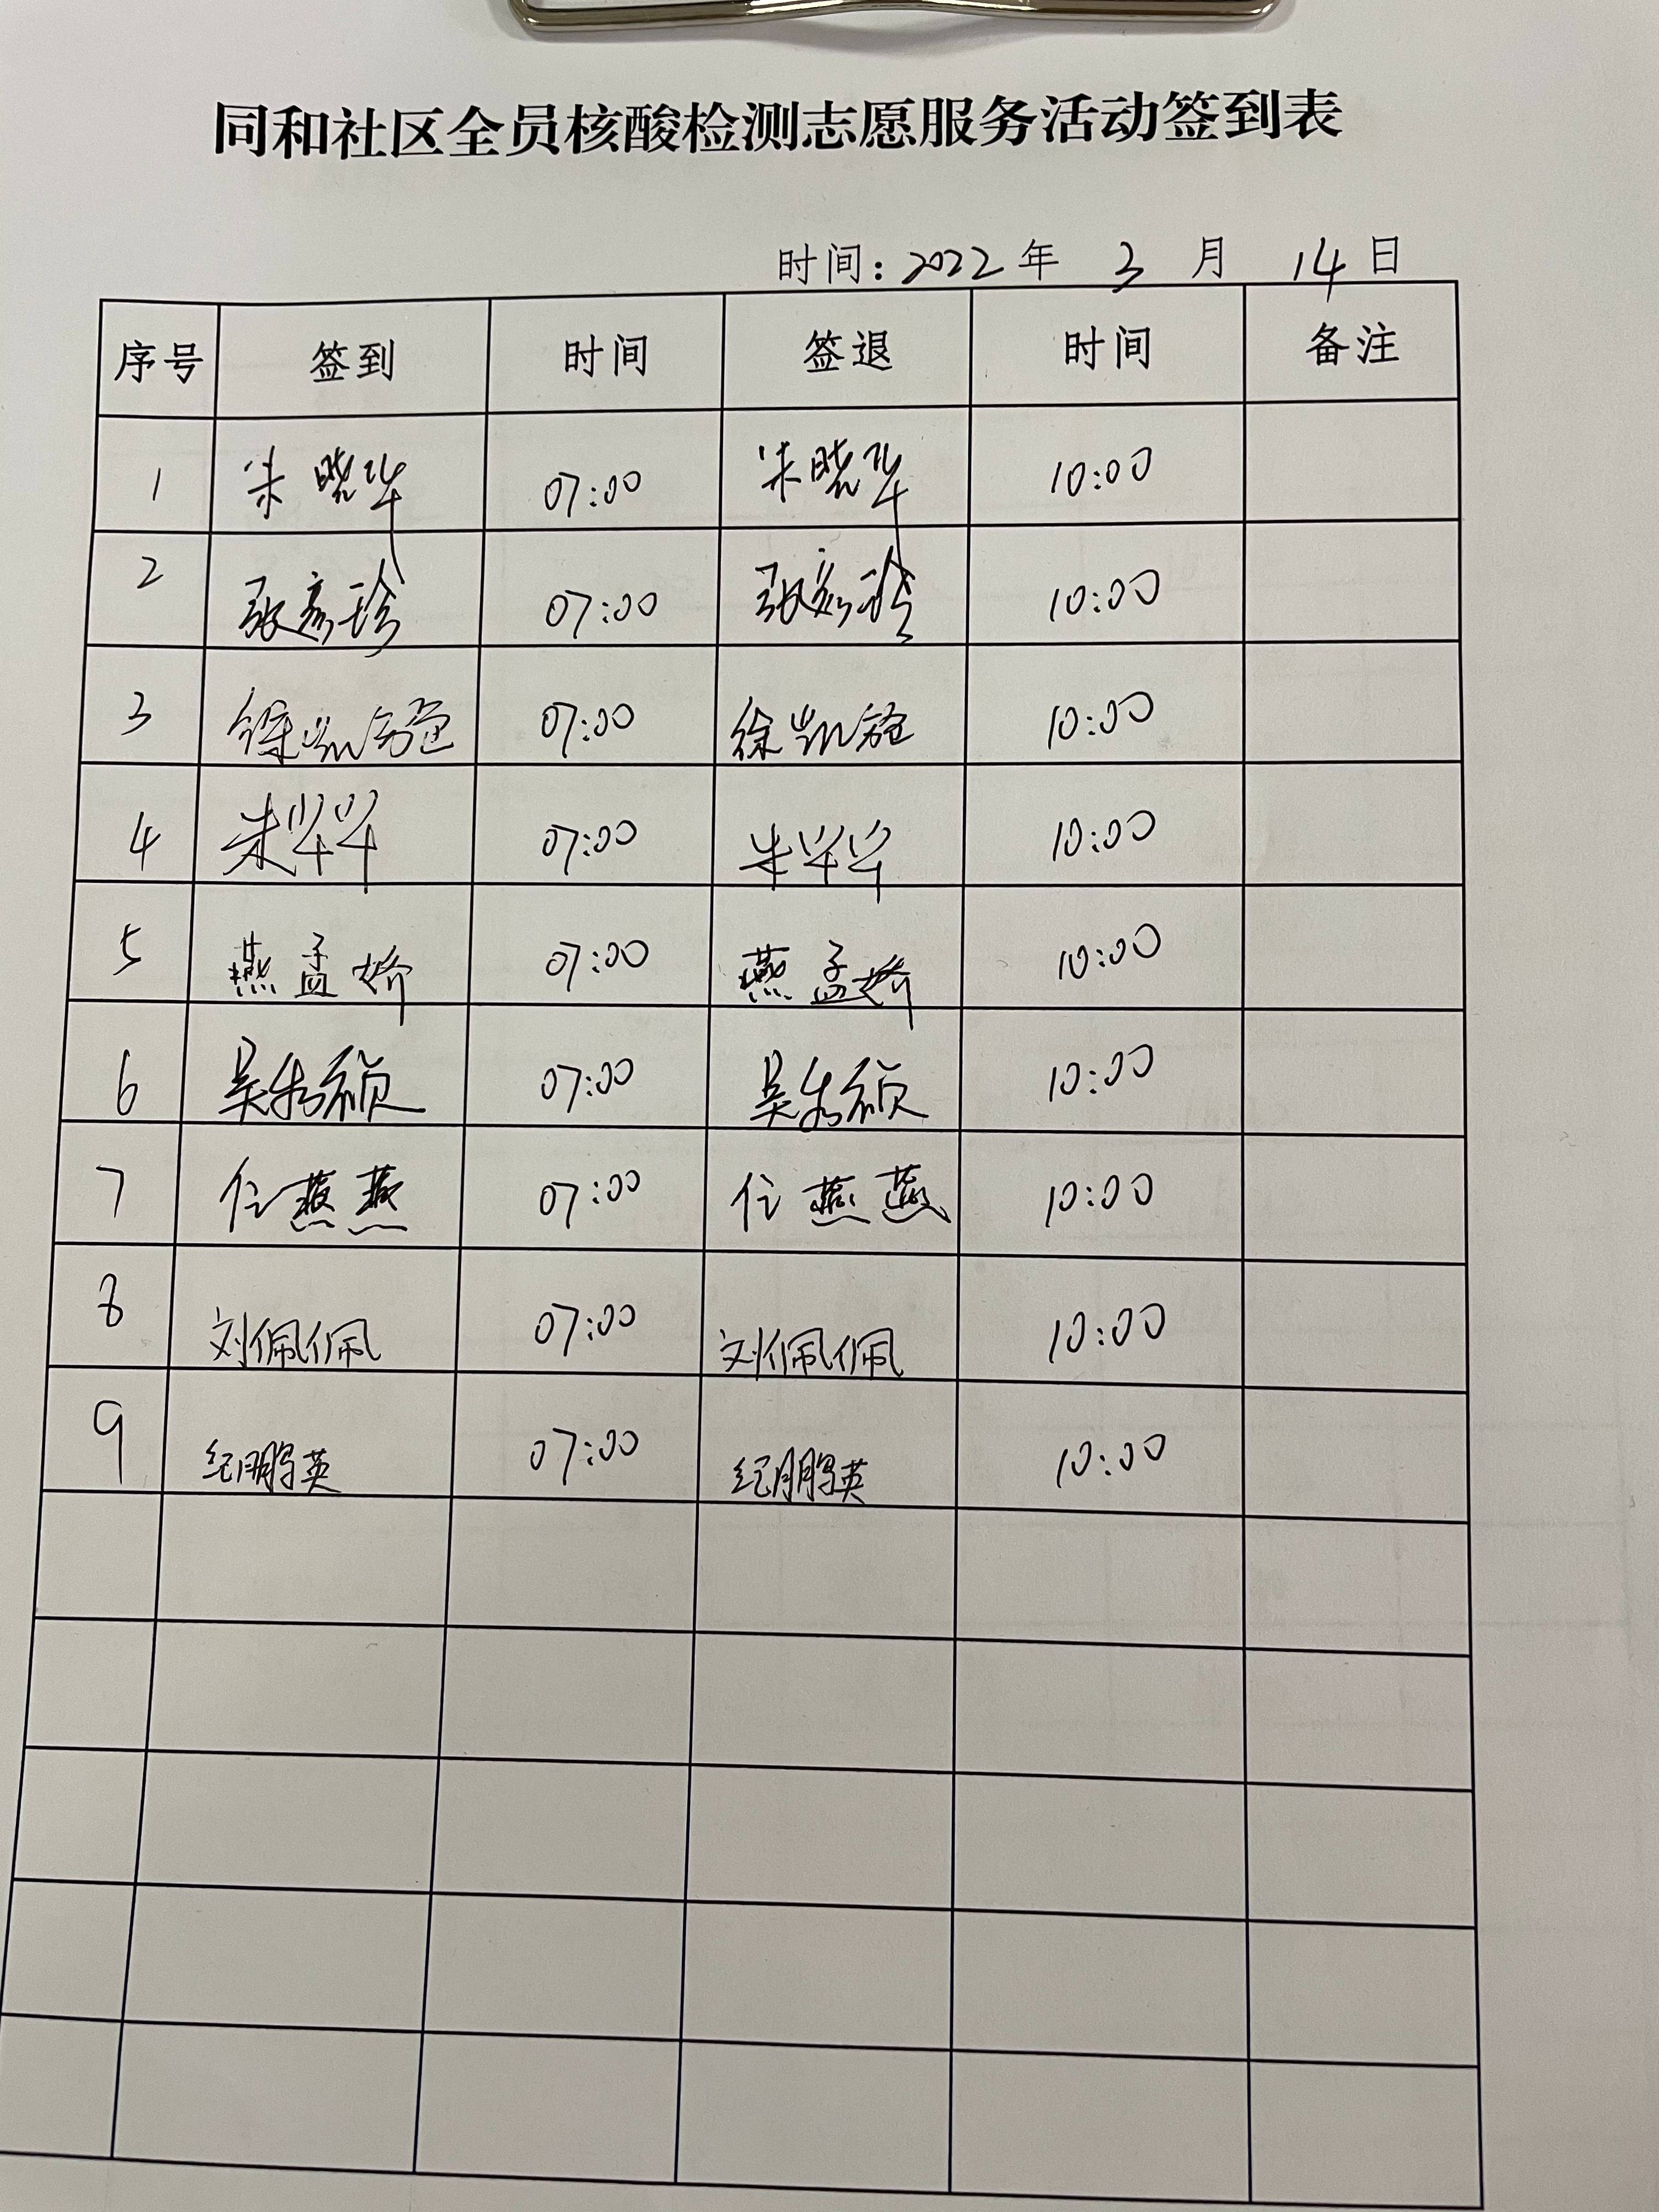 同和社区全员核酸检测志愿服务活动签到表
时间：2022年 3 月 14日
序号 签到 时间 签退 时间 备注
1 朱晓华 07:00 朱晓华 10:00
2 张彦珍 07:00 张彦珍 10:00
3 徐凯 07:00 徐凯 10:00
4 朱华华 07:00 朱华华 10:00
5 燕孟娇 07:00 燕孟娇 10:00
6 吴秀颀 07:00 吴秀颀 10:00
7 任燕燕 07:00 任燕燕 10:00
8 刘佩佩 07:00 刘佩佩 10:00
9 纪鹏英 07:00 纪鹏英 10:00